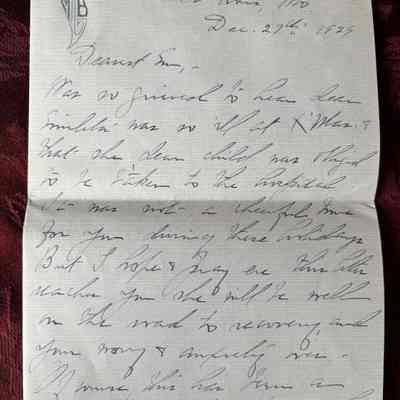 B
Louis, Mo
Dec. 27th, 1929
Dearest Em,-
Was so grieved to hear dear
was so ill at X'Mas. &
that the dear child was obliged
to be taken to the hospital
It was not a cheerful time
for you during these holidays
But I hope & pray ere this letter
reaches you she will be well
on the road to recovery, and
your worry & anxiety over.
Of course this has been a